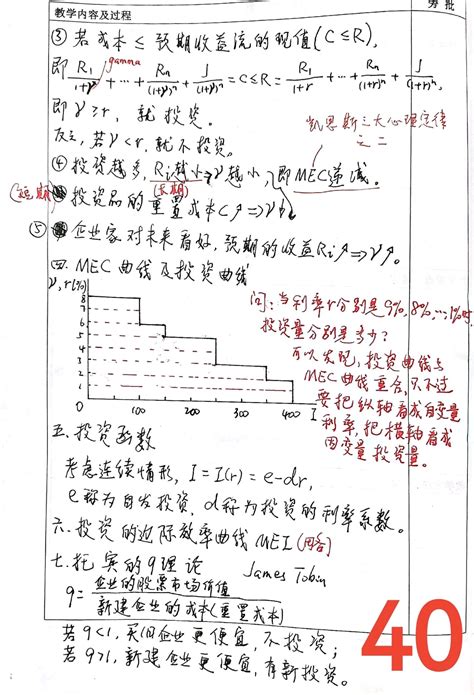 教学内容及过程
旁批
③ 若成本 ≤ 预期收益流的现值(C≤R),
gamma
即 R₁/(1+γ) + … + Rn/(1+γ)ⁿ + J/(1+γ)ⁿ = C ≤ R = R₁/(1+r) + … + Rn/(1+r)ⁿ + J/(1+r)ⁿ,
即 γ ≥ r, 就投资。
反之, 若 γ < r, 就不投资。
凯恩斯三大心理定律之二
④ 投资越多, Ri越小, γ越小, 即MEC递减。
(长期)
(短期) 投资品的重置成本C↗⇒γ↘
⑤ 企业家对未来看好, 预期的收益Ri↗⇒γ↗。
四. MEC曲线及投资曲线
γ, r(%)
8
7
6
5
4
3
2
1
0 100 200 300 400 I
问: 当利率r分别是9%, 8%, …, 1%时
投资量分别是多少?
可以发现, 投资曲线与
MEC曲线重合, 只不过
要把纵轴看成自变量
利率, 把横轴看成
因变量投资量。
五. 投资函数
考虑连续情形, I = I(r) = e-dr,
e称为自发投资, d称为投资的利率系数。
六. 投资的边际效率曲线 MEI (略)
七. 托宾的q理论 James Tobin
q = 企业的股票市场价值/新建企业的成本(重置成本)
若q<1, 买旧企业更便宜, 不投资;
若q>1, 新建企业更便宜, 有新投资。
40